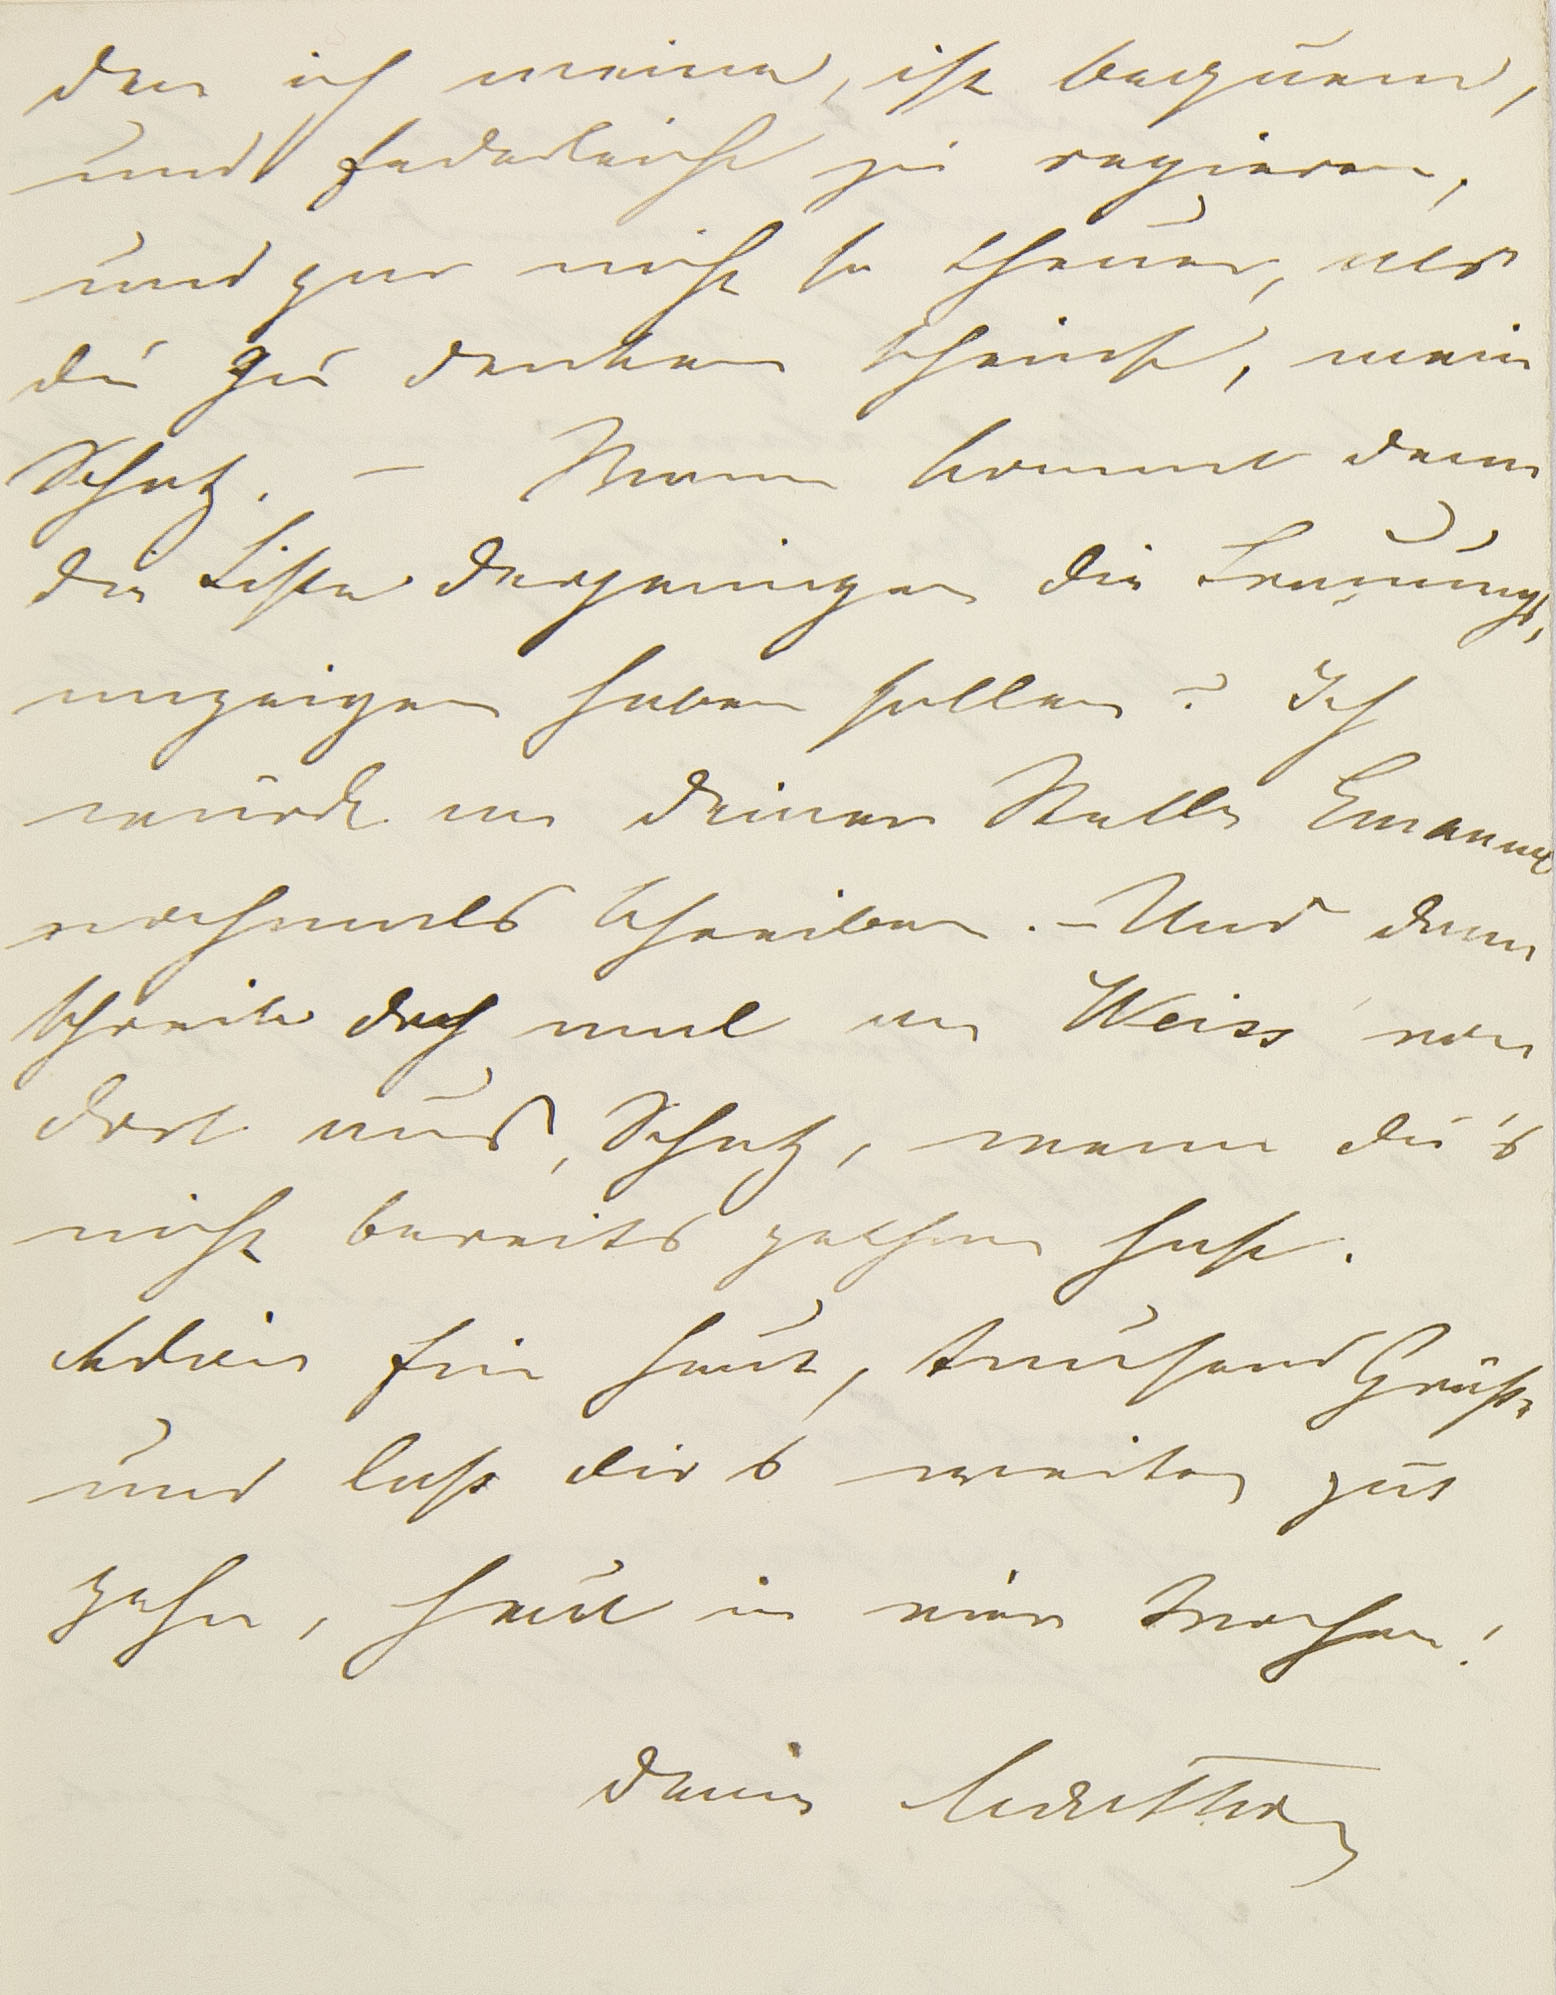 den ich meine, ist bequem,
und federleicht zu regieren,
und gar nicht so theuer, als
du zu denken scheinst, mein
Schatz. – Wann kommt denn
die Liste derjenigen die Trauungs-
anzeigen haben sollen? Ich
würde an deiner Stelle Emanuel
nochmals schreiben. – Und dann
schreib doch mal an Weiss von
dort aus, Schatz, wenn du's
nicht bereits gethan hast.
Adieu für heut, tausend Grüße
und laß dir's weiter gut
gehn, heut in vier Wochen!
dein